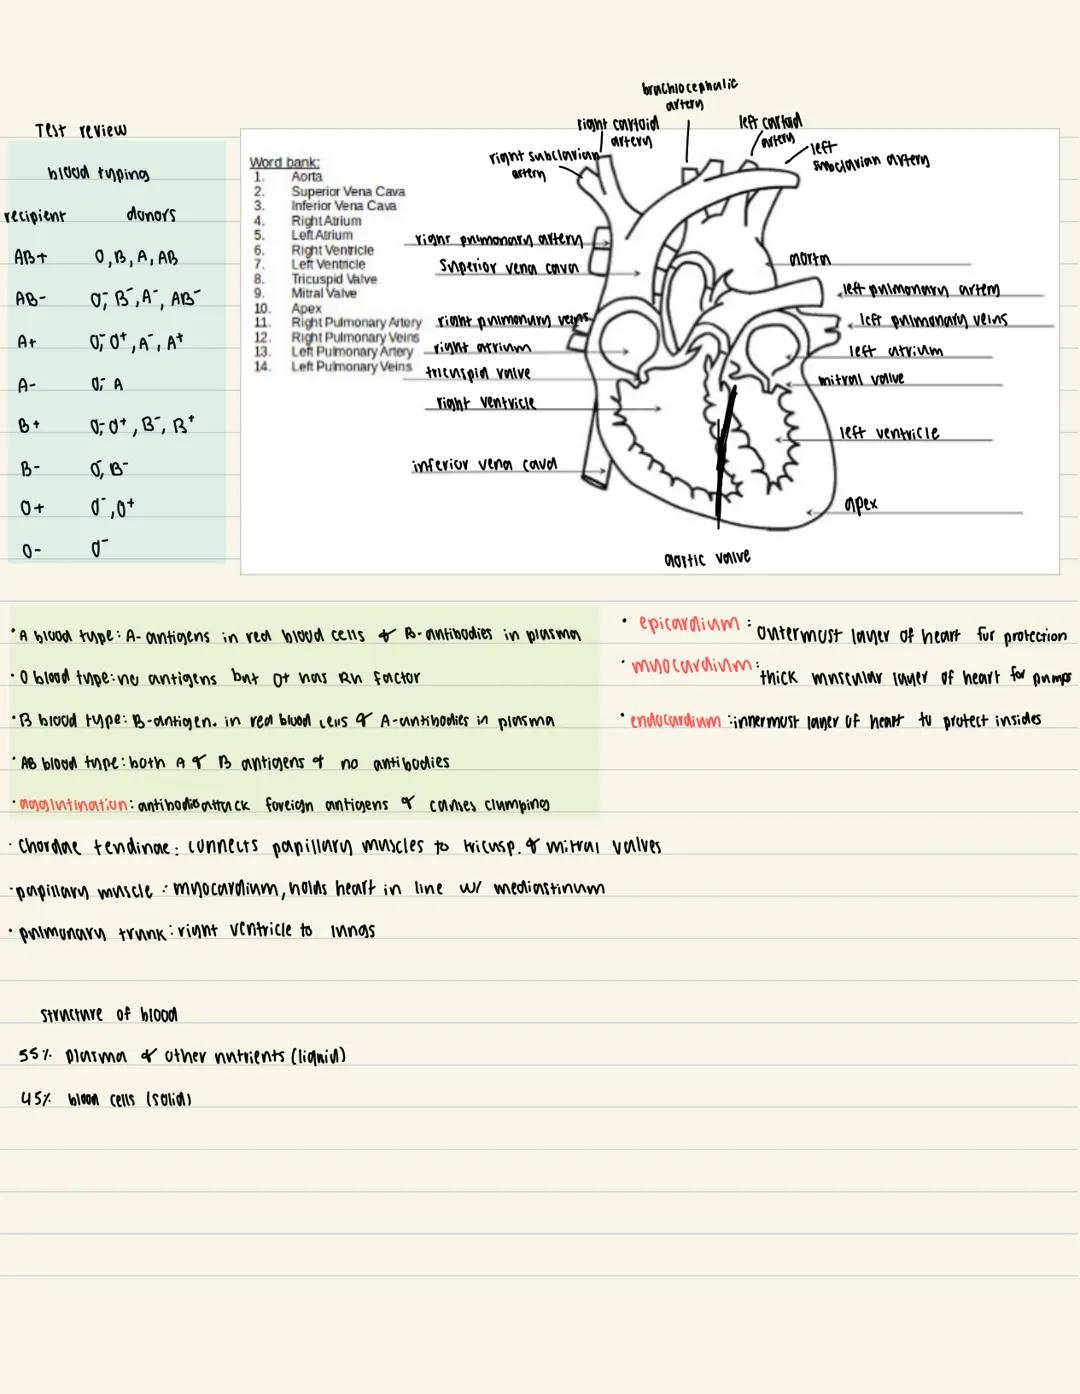 Test review
blood typing
recipient donors
AB+ O, B, A, AB
AB- O⁻, B⁻, A⁻, AB⁻
A+ O⁻, O⁺, A⁻, A⁺
A- O⁻, A
B+ O⁻, O⁺, B⁻, B⁺
B- O⁻, B⁻
O+ O⁻, O⁺
O- O⁻
Word bank:
1. Aorta
2. Superior Vena Cava
3. Inferior Vena Cava
4. Right Atrium
5. Left Atrium
6. Right Ventricle
7. Left Ventricle
8. Tricuspid Valve
9. Mitral Valve
10. Apex
11. Right Pulmonary Artery
12. Right Pulmonary Veins
13. Left Pulmonary Artery
14. Left Pulmonary Veins
brachiocephalic
artery
right cartoid
artery
left cartoid
artery
right subclavian
artery
left
subclavian artery
right pulmonary artery
superior vena cava
right pulmonary veins
right atrium
tricuspid valve
right ventricle
inferior vena cava
aorta
left pulmonary artery
left pulmonary veins
left atrium
mitral valve
left ventricle
apex
aortic valve
• A blood type: A-antigens in red blood cells & B-antibodies in plasma
• O blood type: no antigens but O+ has Rh factor
• B blood type: B-antigen. in red blood cells & A-antibodies in plasma
• AB blood type: both A & B antigens & no antibodies
• agglutination: antibodies attack foreign antigens & causes clumping
• epicardium: outermost layer of heart for protection
• myocardium: thick muscular layer of heart for pumps
• endocardium: innermost layer of heart to protect insides
• Chordae tendinae: connects papillary muscles to tricusp. & mitral valves
• papillary muscle: myocardium, holds heart in line w/ mediastinum
• pulmonary trunk: right ventricle to lungs
structure of blood
55% plasma & other nutrients (liquid)
45% blood cells (solid)